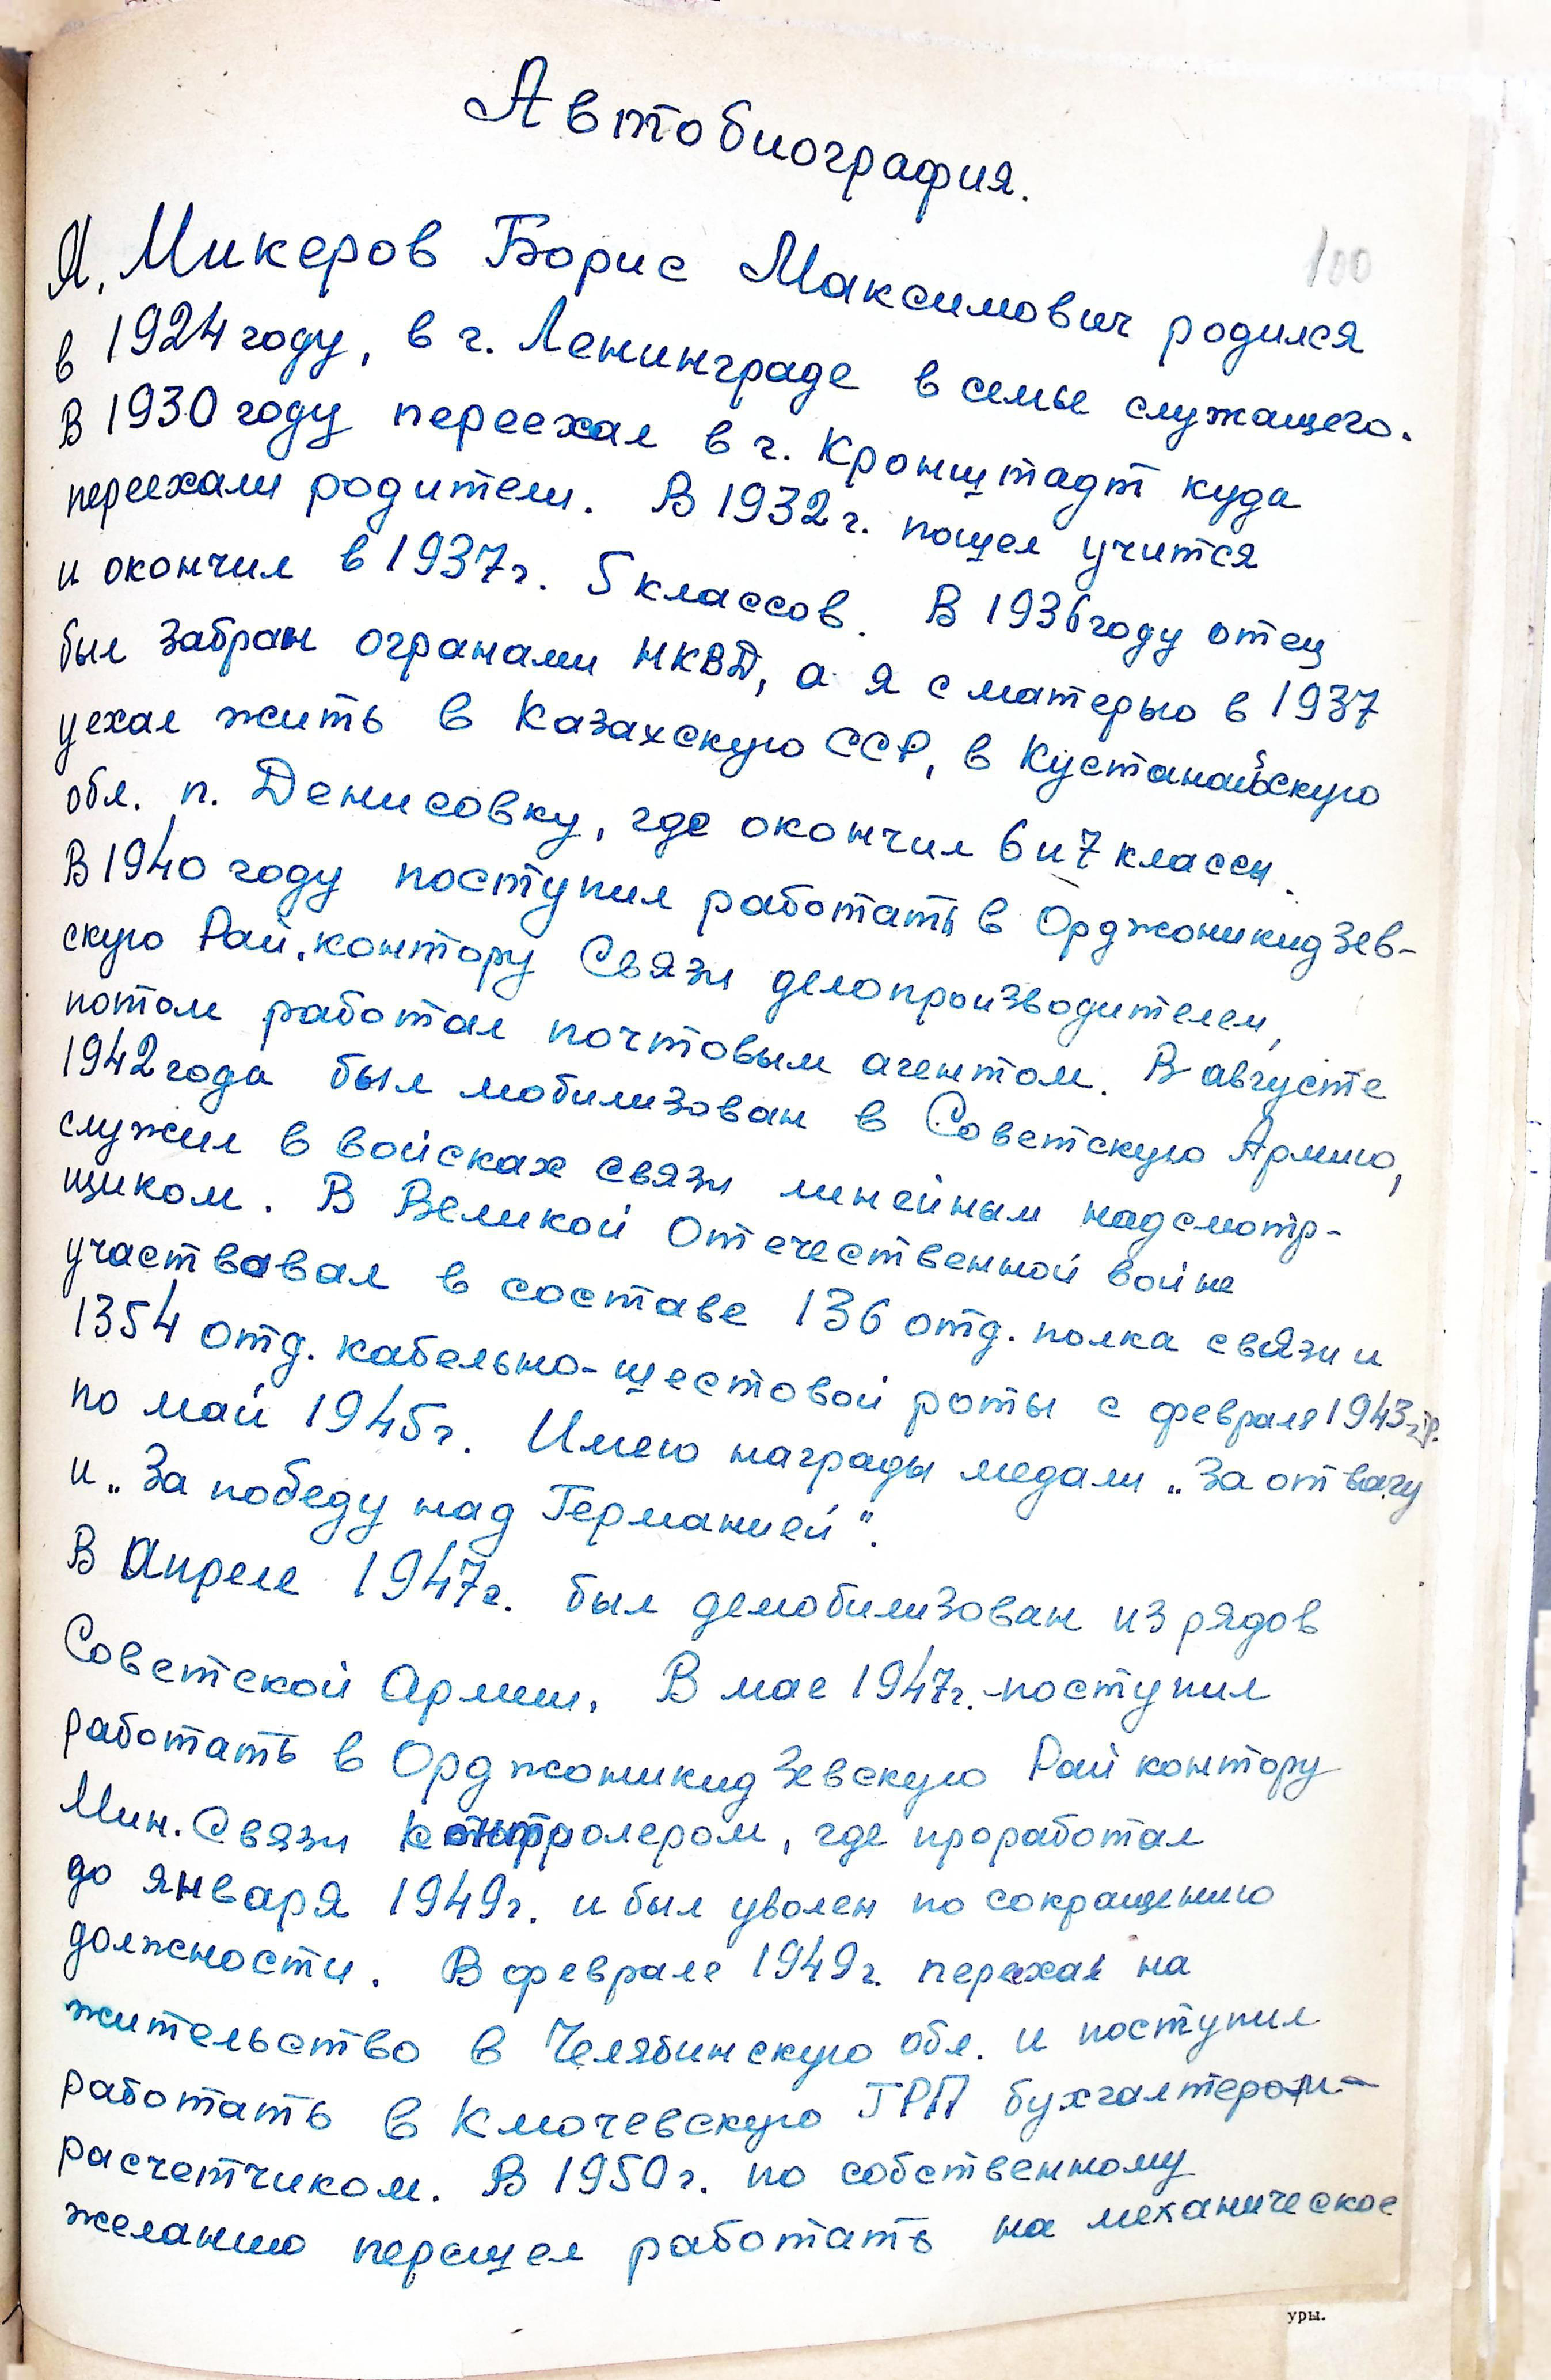 Автобиография.
100
Я, Микеров Борис Максимович родился
в 1924 году, в г. Ленинграде в семье служащего.
В 1930 году переехал в г. Кронштадт куда
переехали родители. В 1932 г. пошел учится
и окончил в 1937 г. 5 классов. В 1936 году отец
был забран ограными НКВД, а я с матерью в 1937
уехал жить в Казахскую ССР, в Кустанайскую
обл. п. Денисовку, где окончил 6 и 7 классы.
В 1940 году поступил работать в Орджоникидзев-
скую Рай.контору Связи делопроизводителем,
потом работал почтовым агентом. В августе
1942 года был мобилизован в Советскую Армию,
служил в войсках связи линейным надсмотр-
щиком. В Великой Отечественной войне
участвовал в составе 136 отд. полка связи и
1354 отд. кабельно-шестовой роты с февраля 1943 г.
по май 1945 г. Имею награды медали „За отвагу
и „За победу над Германией".
В Апреле 1947 г. был демобилизован из рядов
Советской Армии. В мае 1947 г. поступил
работать в Орджоникидзевскую Рай контору
Мин. Связи контролером, где проработал
до января 1949 г. и был уволен по сокращению
должности. В феврале 1949 г. переехал на
жительство в Челябинскую обл. и поступил
работать в Ключевскую ГРП бухгалтером-
расчетчиком. В 1950 г. по собственному
желанию перешел работать на механическое
уры.